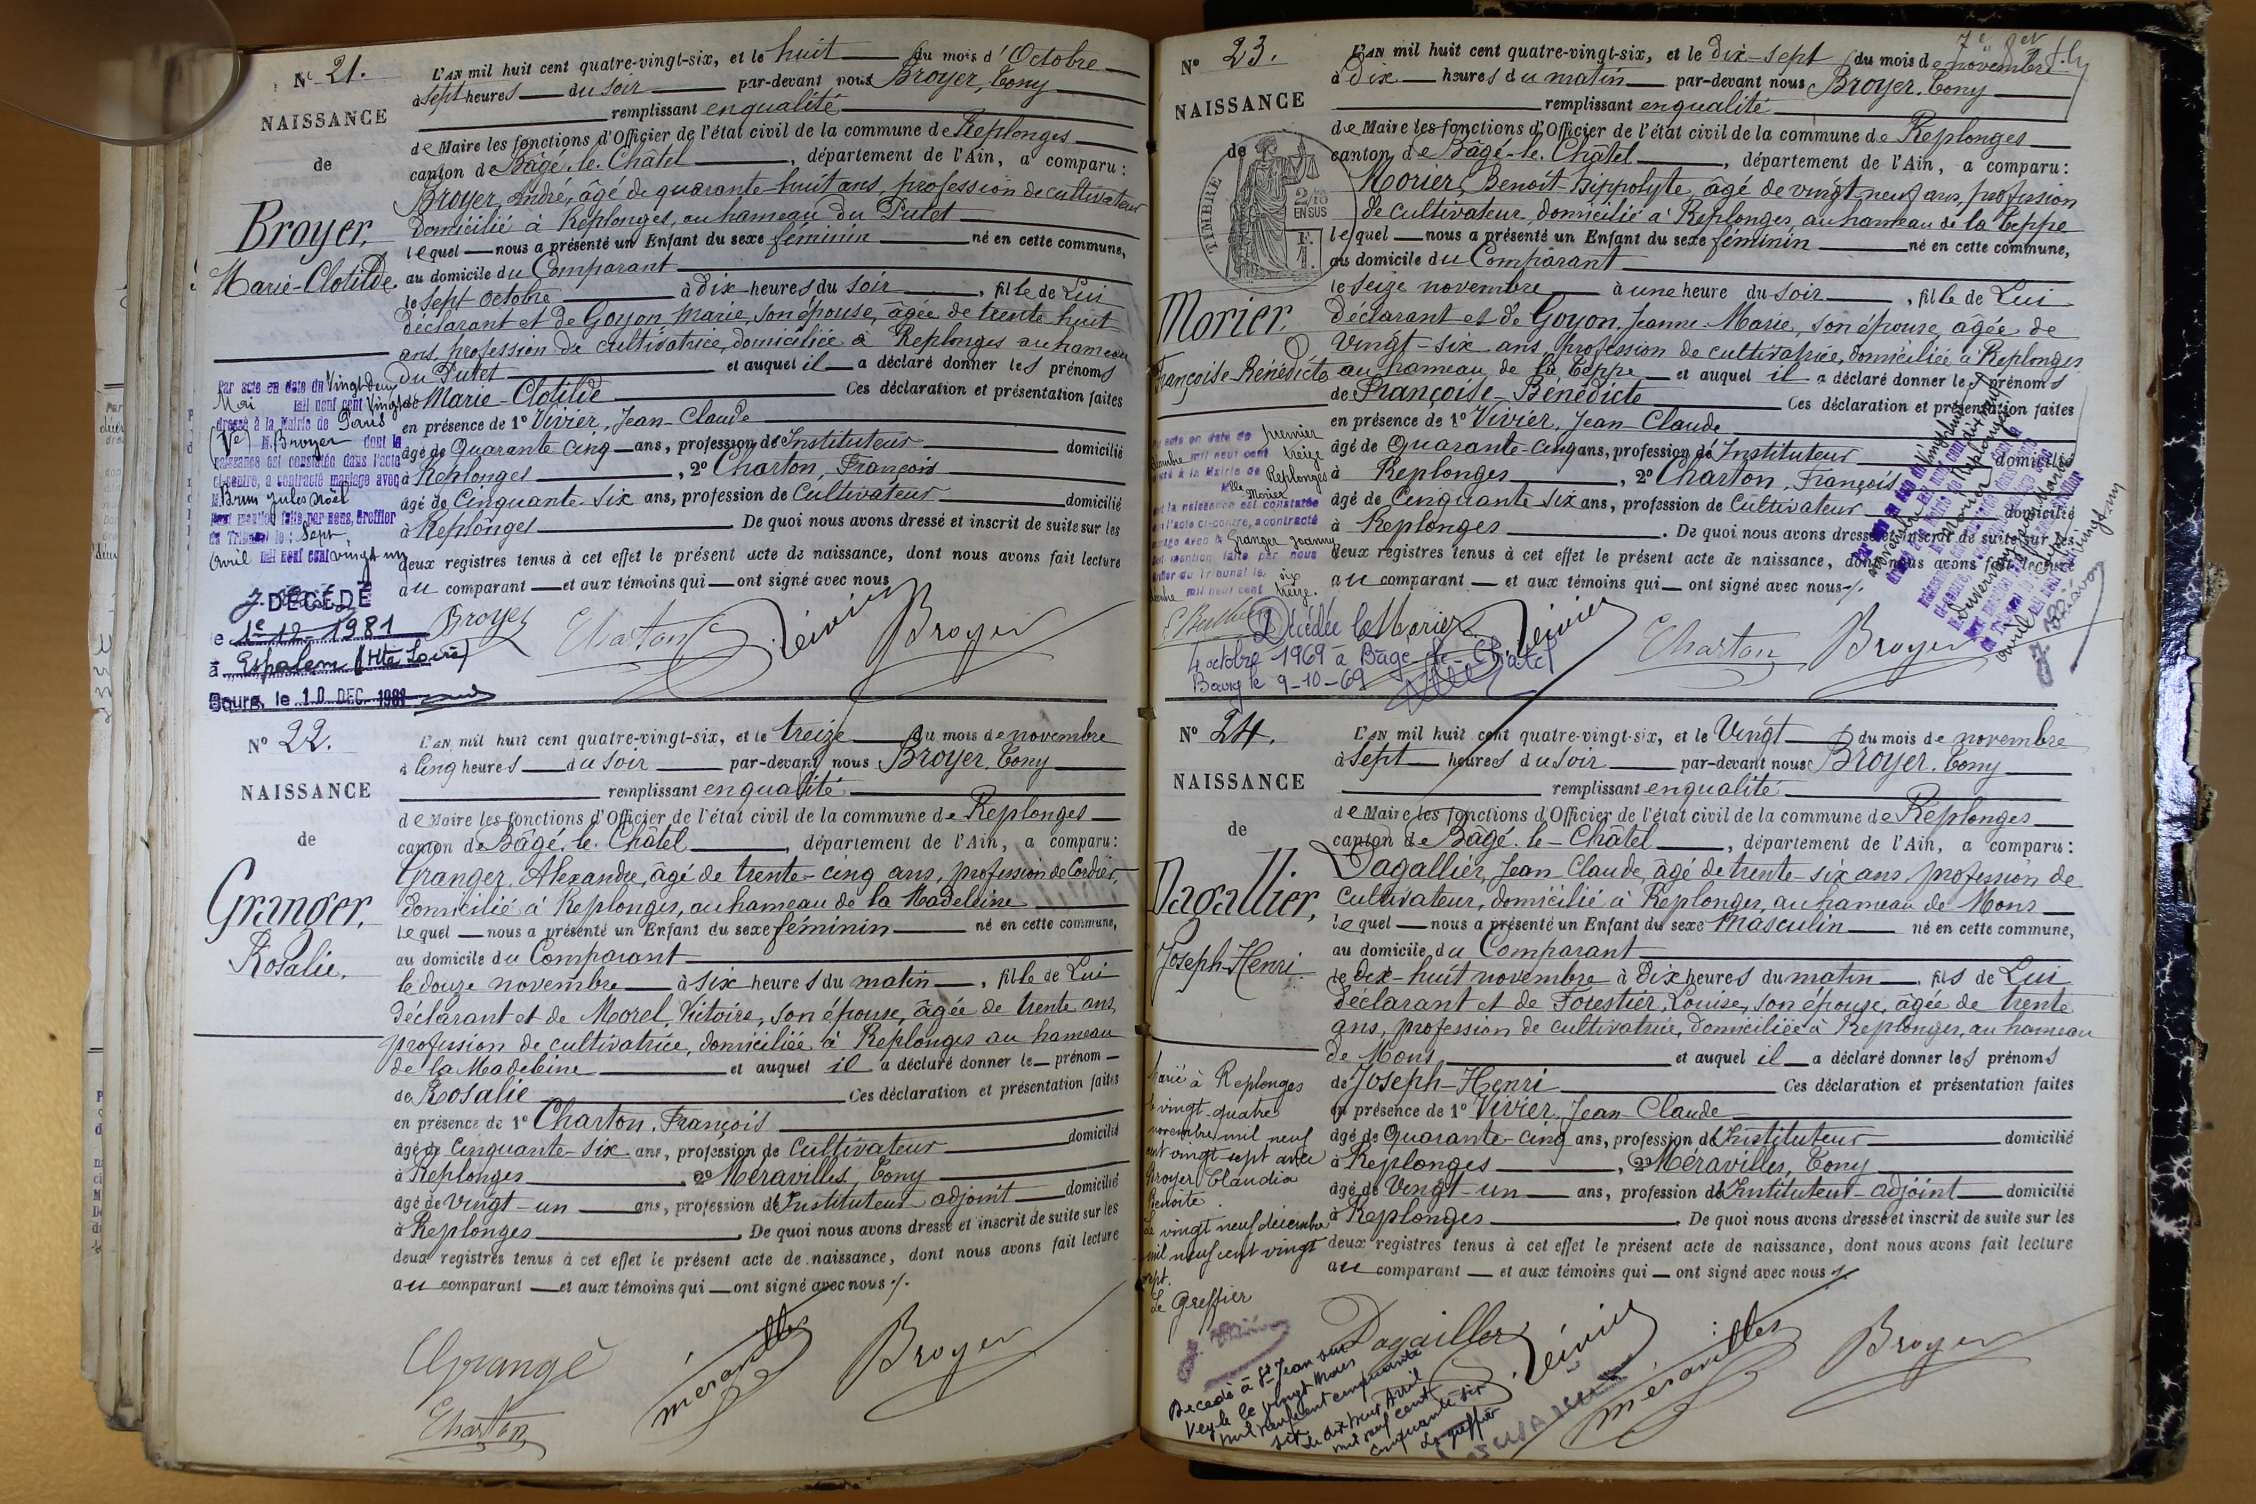 N° 21.
NAISSANCE
de
Broyer,
Marie-Clotilde.
L'AN mil huit cent quatre-vingt-six, et le huit du mois d'Octobre
à sept heures du soir par-devant nous Broyer, Tony
remplissant en qualité
de Maire les fonctions d'Officier de l'état civil de la commune de Replonges
canton de Bâgé-le-Châtel, département de l'Ain, a comparu:
Broyer, André, âgé de quarante-huit ans, profession de cultivateur
domicilié à Replonges, au hameau du Putet
lequel nous a présenté un Enfant du sexe féminin né en cette commune,
au domicile du Comparant
le sept octobre à dix heures du soir, fille de Lui
déclarant et de Goyon, Marie, son épouse, âgée de trente huit
ans, profession de cultivatrice, domiciliée à Replonges au hameau
du Putet et auquel il a déclaré donner les prénoms
de Marie-Clotilde Ces déclaration et présentation faites
en présence de 1° Vivier, Jean-Claude
âgé de Quarante cinq ans, profession de Instituteur domicilié
à Replonges, 2° Charton, François
âgé de Cinquante-six ans, profession de Cultivateur domicilié
à Replonges De quoi nous avons dressé et inscrit de suite sur les
deux registres tenus à cet effet le présent acte de naissance, dont nous avons fait lecture
au comparant et aux témoins qui ont signé avec nous
Par acte en date du Vingt deux
Mai mil neuf cent Vingt
dressé à la Mairie de Paris
M. Broyer dont la
naissance est constatée dans l'acte
ci-contre, a contracté mariage avec
M. Brun Jules Noël
Dont mention faite par nous, Greffier
du Tribunal le: Sept
Avril mil neuf cent vingt un
DÉCÉDÉ
le 1er 12 1981
à Espalem (Hte Loire)
Bourg, le 10 DEC. 1981
Broyer Charton Vivier Broyer
N° 22.
NAISSANCE
de
Granger,
Rosalie.
L'AN mil huit cent quatre-vingt-six, et le treize du mois de novembre
à Cinq heures du soir par-devant nous Broyer, Tony
remplissant en qualité
de Maire les fonctions d'Officier de l'état civil de la commune de Replonges
canton de Bâgé-le-Châtel, département de l'Ain, a comparu:
Granger, Alexandre, âgé de trente-cinq ans, profession de Cordier,
domicilié à Replonges, au hameau de la Madeleine
lequel nous a présenté un Enfant du sexe féminin né en cette commune,
au domicile du Comparant
le douze novembre à six heures du matin, fille de Lui
déclarant et de Morel, Victoire, son épouse, âgée de trente ans,
profession de cultivatrice, domiciliée à Replonges au hameau
de la Madeleine et auquel il a déclaré donner le prénom
de Rosalie Ces déclaration et présentation faites
en présence de 1° Charton, François
âgé de Cinquante-six ans, profession de Cultivateur domicilié
à Replonges 2° Méravilles, Tony
âgé de Vingt-un ans, profession d'Instituteur adjoint domicilié
à Replonges De quoi nous avons dressé et inscrit de suite sur les
deux registres tenus à cet effet le présent acte de naissance, dont nous avons fait lecture
au comparant et aux témoins qui ont signé avec nous
Grangé meravilles Broyer
Charton
N° 23.
NAISSANCE
de
TIMBRE
2/10
EN SUS
F.
1.
Morier,
Françoise-Bénédicte
L'AN mil huit cent quatre-vingt-six, et le dix-sept du mois de novembre
à Dix heures du matin par-devant nous Broyer, Tony
remplissant en qualité
de Maire les fonctions d'Officier de l'état civil de la commune de Replonges
canton de Bâgé-le-Châtel, département de l'Ain, a comparu:
Morier, Benoît-Hippolyte, âgé de vingt-neuf ans, profession
de cultivateur, domicilié à Replonges, au hameau de la Teppe
lequel nous a présenté un Enfant du sexe féminin né en cette commune,
au domicile du Comparant
le seize novembre à une heure du soir, fille de Lui
déclarant et de Goyon, Jeanne-Marie, son épouse, âgée de
vingt-six ans, profession de cultivatrice, domiciliée à Replonges
au hameau de la Teppe et auquel il a déclaré donner les prénoms
de Françoise-Bénédicte Ces déclaration et présentation faites
en présence de 1° Vivier, Jean-Claude
âgé de Quarante-cinq ans, profession d'Instituteur domicilié
à Replonges, 2° Charton, François
âgé de Cinquante six ans, profession de Cultivateur domicilié
à Replonges. De quoi nous avons dressé et inscrit de suite sur les
deux registres tenus à cet effet le présent acte de naissance, dont nous avons fait lecture
au comparant et aux témoins qui ont signé avec nous
acte en date du premier
mil neuf cent treize
à la Mairie de Replonges
Elle Morier
la naissance est constatée
l'acte ci-contre, a contracté
avec M. Granger Joanny
mention faite par nous
du Tribunal le six
mil neuf cent treize.
Décédée le
4 octobre 1969 à Bâgé-le-Châtel
Bourg le 9-10-69
Morier Vivier Charton Broyer
N° 24.
NAISSANCE
de
Dagallier,
Joseph-Henri
L'AN mil huit cent quatre-vingt-six, et le Vingt du mois de novembre
à sept heures du soir par-devant nous Broyer, Tony
remplissant en qualité
de Maire les fonctions d'Officier de l'état civil de la commune de Replonges
canton de Bâgé-le-Châtel, département de l'Ain, a comparu:
Dagallier, Jean-Claude, âgé de trente-six ans, profession de
Cultivateur, domicilié à Replonges, au hameau de Mons
lequel nous a présenté un Enfant du sexe Masculin né en cette commune,
au domicile du Comparant
le dix-huit novembre à dix heures du matin, fils de Lui
déclarant et de Forestier, Louise, son épouse, âgée de trente
ans, profession de cultivatrice, domiciliée à Replonges, au hameau
de Mons et auquel il a déclaré donner les prénoms
de Joseph-Henri Ces déclaration et présentation faites
en présence de 1° Vivier, Jean-Claude
âgé de Quarante-cinq ans, profession d'Instituteur domicilié
à Replonges, 2° Méravilles, Tony
âgé de Vingt-un ans, profession d'Instituteur-adjoint domicilié
à Replonges De quoi nous avons dressé et inscrit de suite sur les
deux registres tenus à cet effet le présent acte de naissance, dont nous avons fait lecture
au comparant et aux témoins qui ont signé avec nous
Marié à Replonges
le vingt-quatre
novembre mil neuf
cent vingt sept avec
Broyer Claudia
Benoite.
Le vingt neuf décembre
mil neuf cent vingt
sept.
Le Greffier
Dagallier Vivier meravilles Broyer
Décédé à St Jean sur
Veyle le vingt Mars
mil neuf cent cinquante
six Le dix huit Avril
mil neuf cent
cinquante six
Le greffier